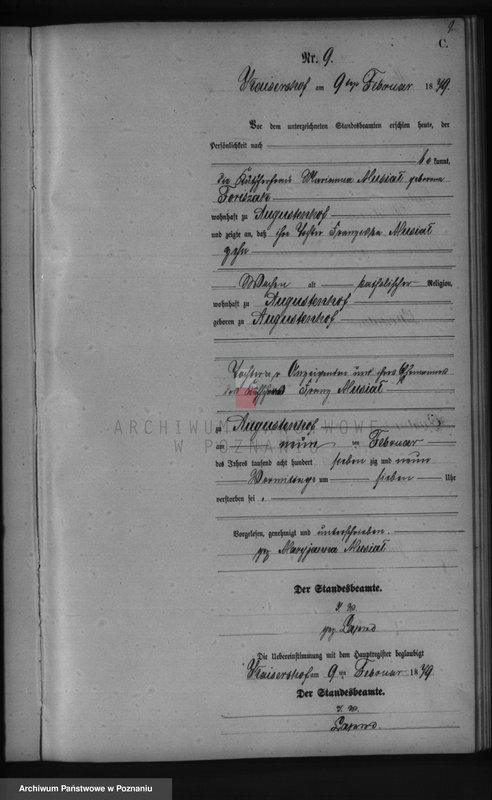 9.
C.
Nr. 9.
Kaisershof am 9ten Februar 1879.
Vor dem unterzeichneten Standesbeamten erschien heute, der
Persönlichkeit nach
be kannt,
die Kutscherfrau Marianna Musiał geborene
wohnhaft zu Augustenhof
und zeigte an, daß ihre Tochter Franziska Musiał
zehn
Wochen alt katholischer Religion,
wohnhaft zu Augustenhof
geboren zu Augustenhof
Tochter der Anzeigenden und ihres Ehemannes
des Kutschers Franz Musiał
ARCHIWUM PAŃSTWOWE
W POZNANIU
zu Augustenhof
am neun ten Februar
des Jahres tausend acht hundert sieben zig und neun
Vormittags um sieben Uhr
verstorben sei.
Vorgelesen, genehmigt und unterschrieben.
gez Maryjanna Musiał
Der Standesbeamte.
I. V.
gez
Die Uebereinstimmung mit dem Hauptregister beglaubigt
Kaisershof am 9ten Februar 1879.
Der Standesbeamte.
I. V.
Archiwum Państwowe w Poznaniu